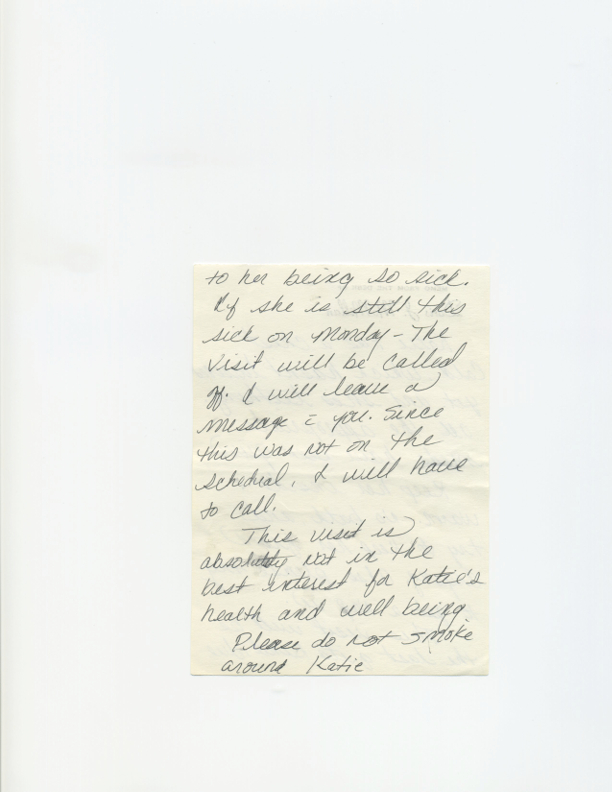 to her being so sick.
If she is still this
sick on Monday - The
Visit will be called
off. I will leave a
message c̄ you. Since
this was not on the
schedual, I will have
to call.
This visit is
absolutly not in the
best interest for Katie's
health and well being.
Please do not smoke
around Katie